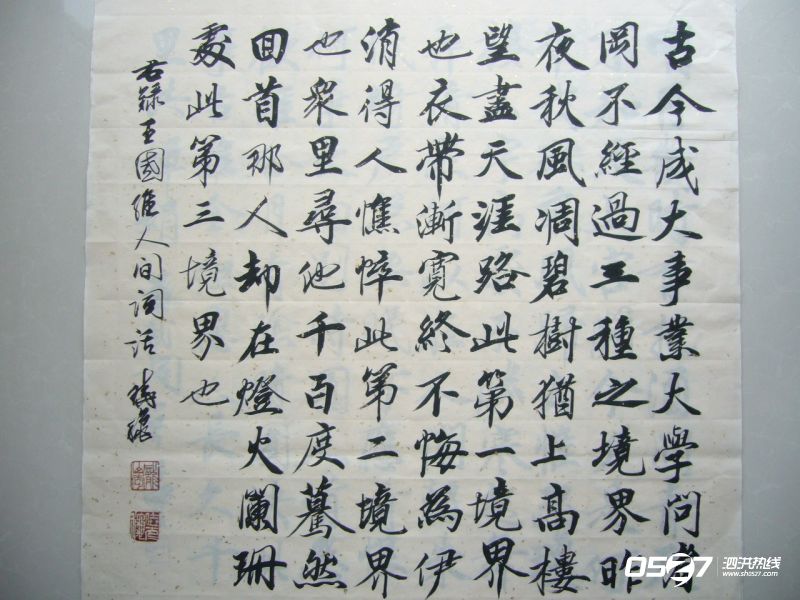 古今成大事業大學問者
罔不經過三種之境界昨
夜秋風凋碧樹猶上高樓
望盡天涯路此第一境界
也衣帶漸寬終不悔為伊
消得人憔悴此第二境界
也衆里尋他千百度驀然
回首那人却在燈火闌珊
處此第三境界也
右録王國維人間詞話
0527 泗洪热线
www.sh0527.com